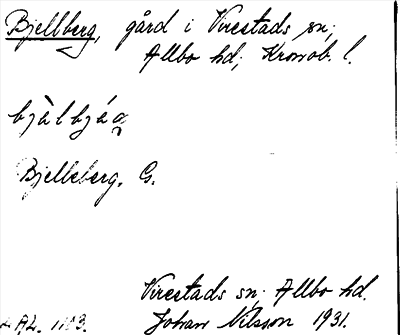 Bjellberg, gård i Virestads sn;
Allbo hd; Kronob. l.
bjàlbjáɑ̨
Bjelleberg. G.
Virestads sn; Allbo hd.
Johan Nilsson 1931.